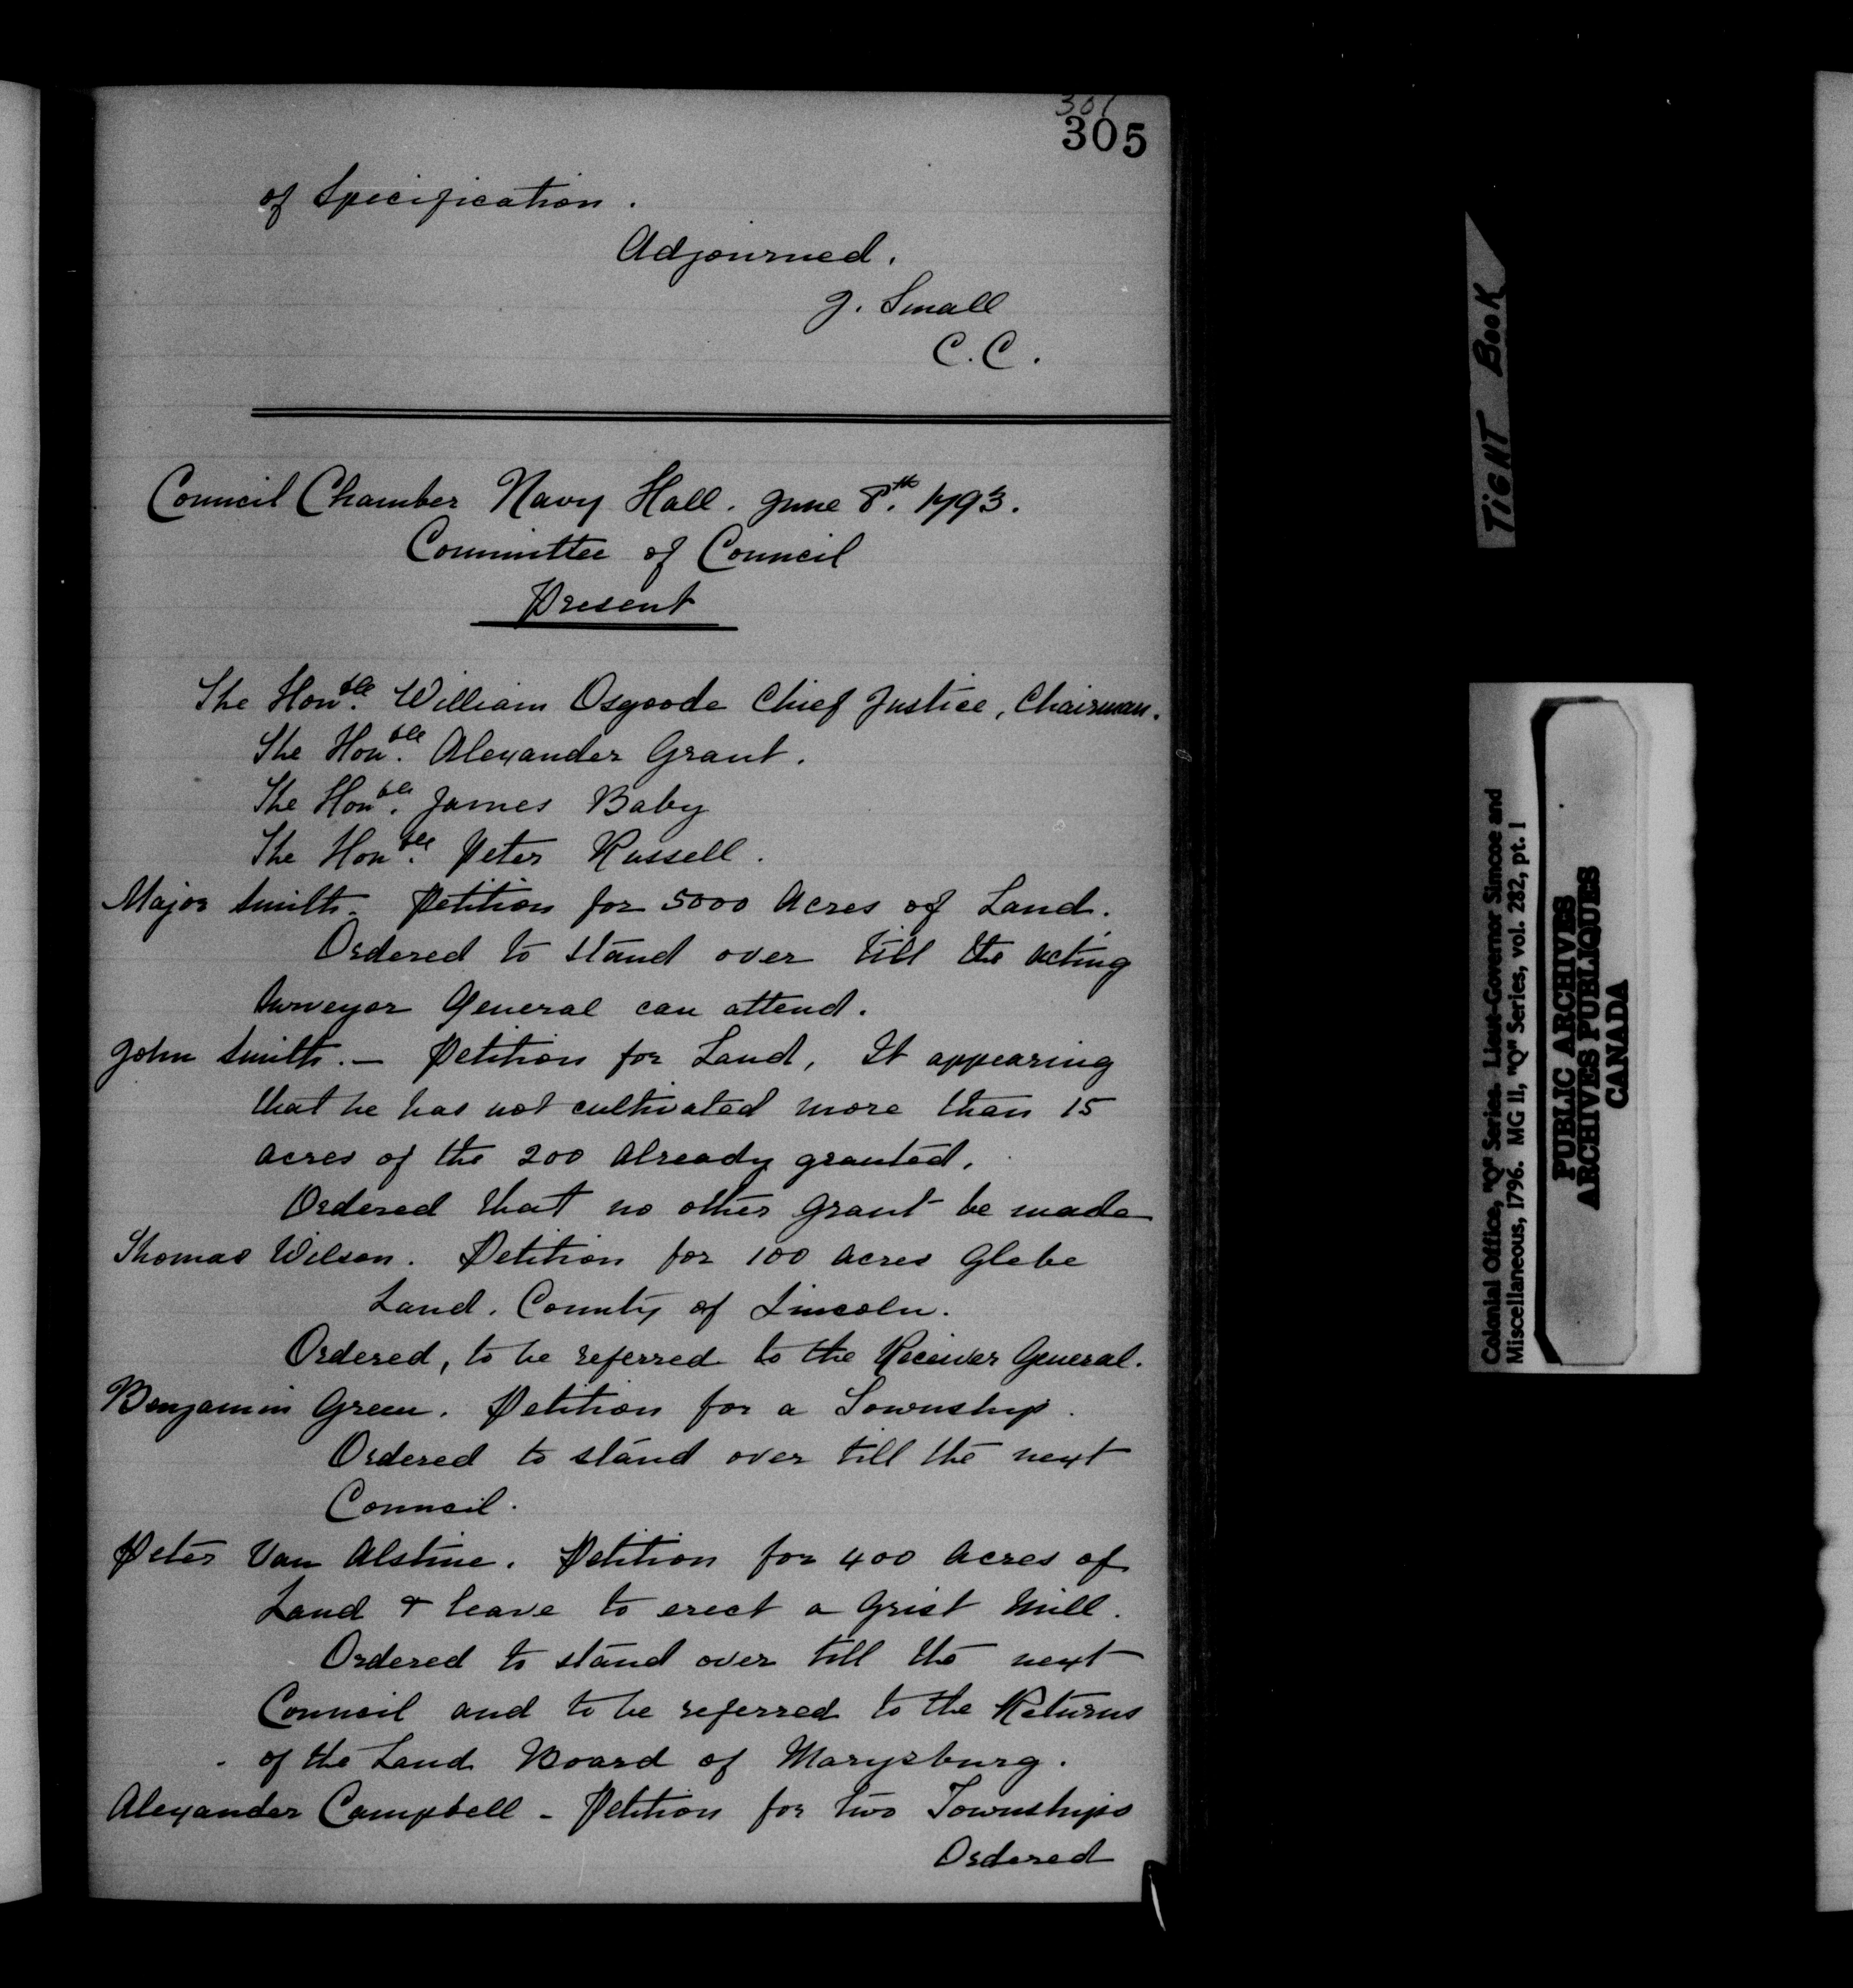 301
305
of Specification.
Adjourned.
J. Small
C.C.
Council Chamber Navy Hall. June 8th. 1793.
Committee of Council
Present
The Honble. William Osgoode Chief Justice, Chairman.
The Honble. Alexander Grant.
The Honble. James Baby
The Honble. Peter Russell.
Major Smith. Petition for 5000 Acres of Land.
Ordered to stand over till the acting
Surveyor General can attend.
John Smith. — Petition for Land, It appearing
that he has not cultivated more than 15
acres of the 200 already granted.
Ordered that no other grant be made
Thomas Wilson. Petition for 100 acres Glebe
Land. County of Lincoln.
Ordered, to be referred to the Receiver General.
Benjamin Green. Petition for a Township.
Ordered to stand over till the next
Council.
Peter Van Alstine. Petition for 400 Acres of
Land & leave to erect a Grist Mill.
Ordered to stand over till the next
Council and to be referred to the Returns
of the Land Board of Marysburg.
Alexander Campbell - Petition for two Townships
Ordered
TIGHT BOOK
Colonial Office, "Q" Series. Lieut-Governor Simcoe and
Miscellaneous, 1796. MG 11, "Q" Series, vol. 282, pt. 1
PUBLIC ARCHIVES
ARCHIVES PUBLIQUES
CANADA